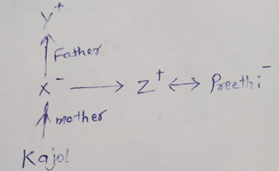 Y+
Father
X- → Z+ ↔ Preethi-
mother
Kajol